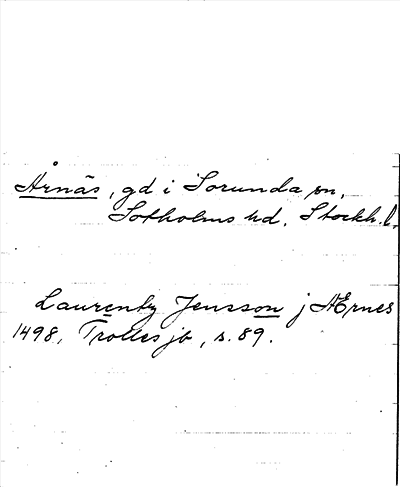 Årnäs, gd i Sorunda sn,
Sotholms hd. Stockh. l.
Laurentz Jensson j Ærnes
1498, Trolles jb, s. 89.